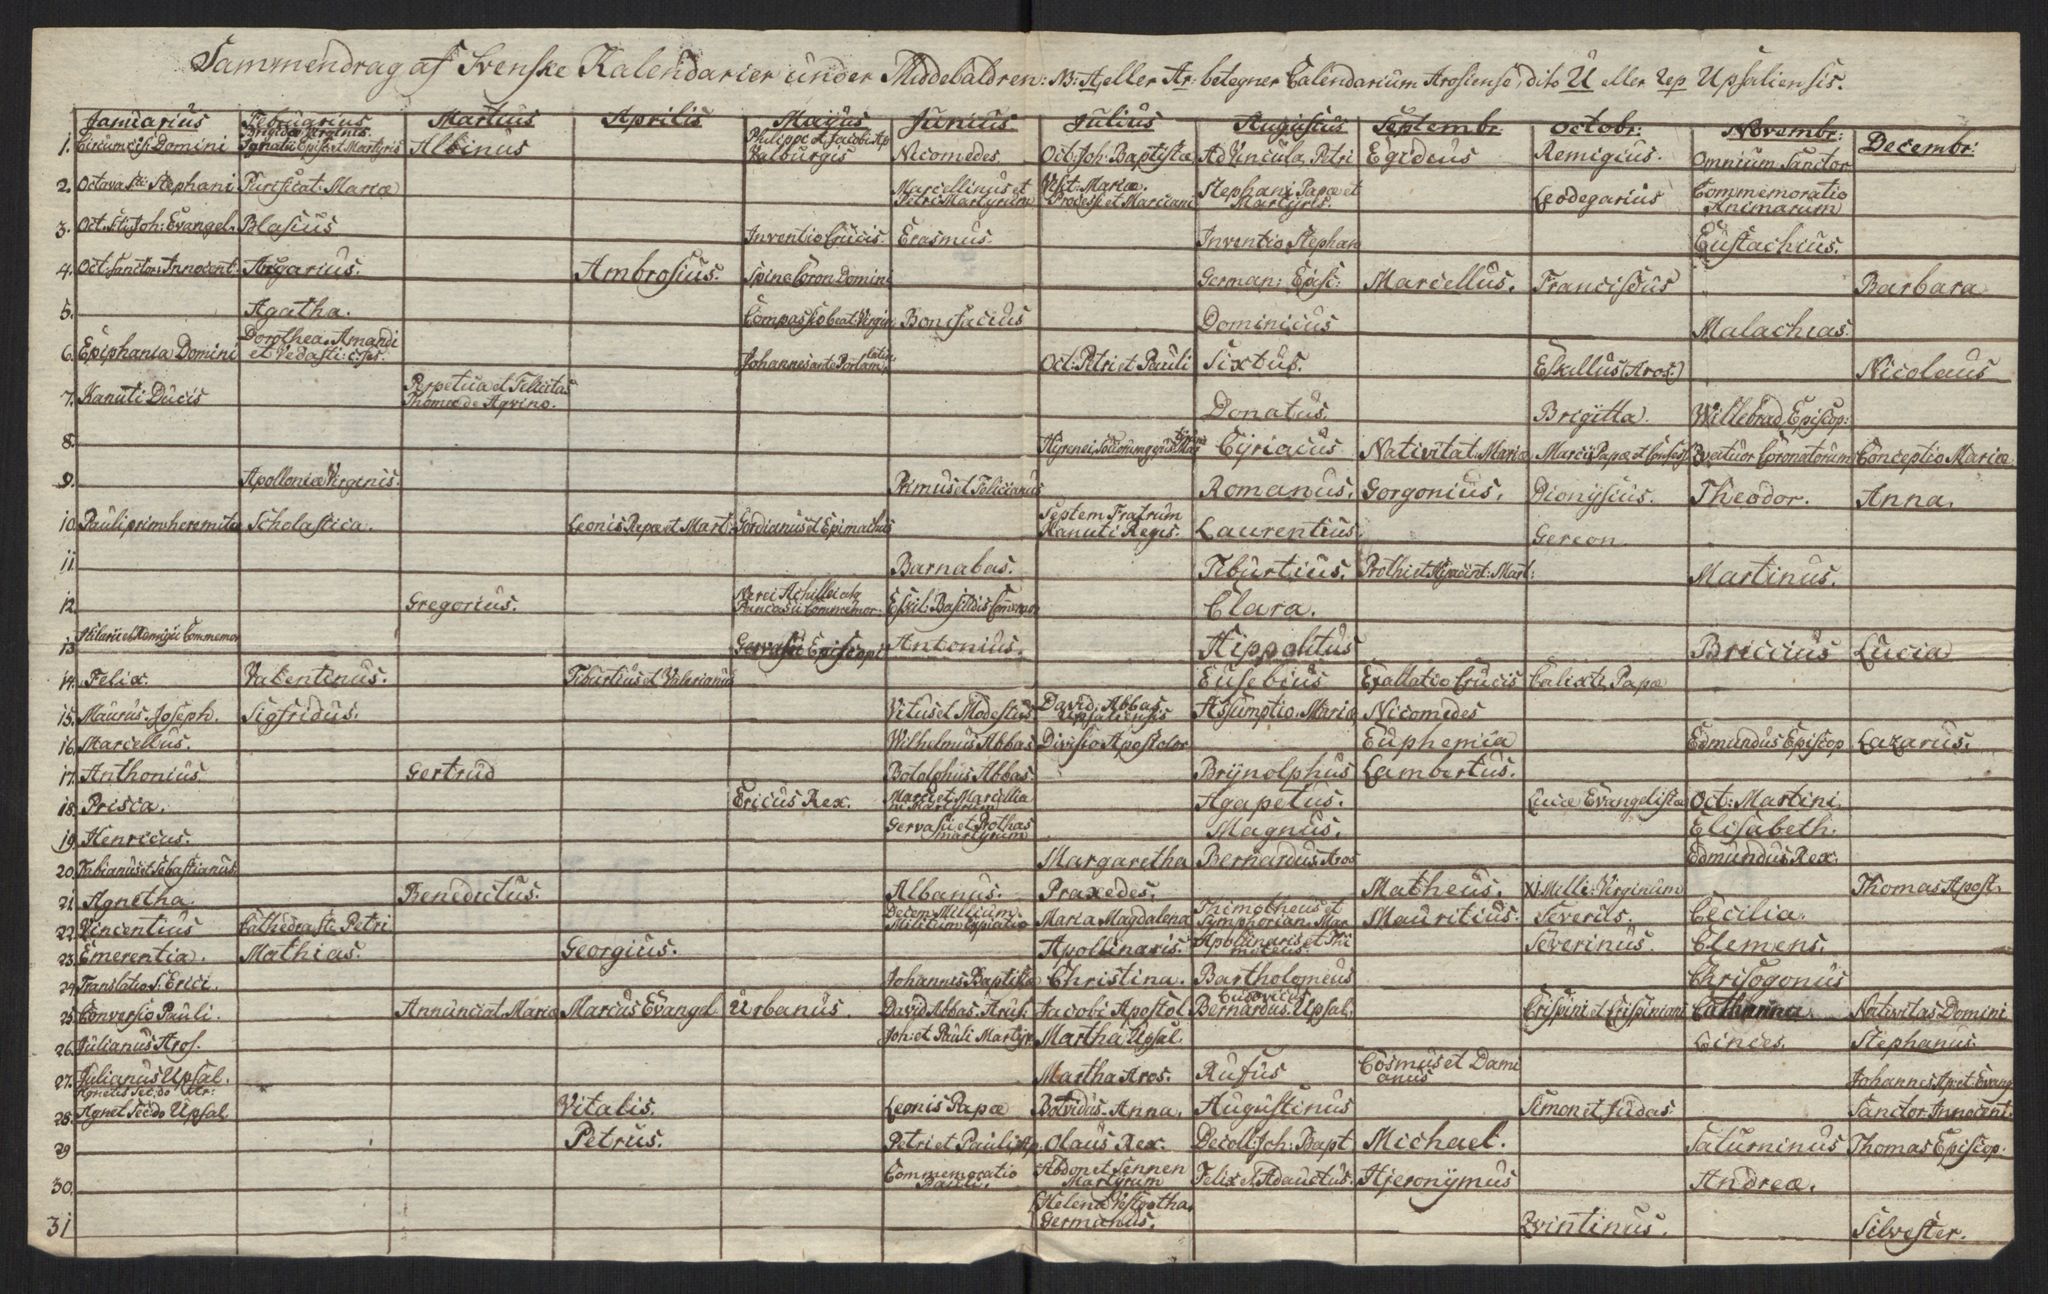 Sammendrag af Svenske Kalendarier under Middelaldren: NB: A eller Ar: betegner Calendarium Arosiense, dito U eller Up Upsaliensis.
Januarius Februarius Martius Aprilis Majus Junius Julius Augustus Septembr. Octobr: Novembr: Decembr:
Brigidæ Virginis. Philippi et Jacobi Ap
1. Circumcis: Domini Ignatii Episc. et Martyris Albinus Valburgis Nicomedes. Oct: Joh: Baptistæ Ad Vincula Petri Egidius Remigius. Omnium Sanctor
Marcellinus et Visit: Mariæ. Stephani Papæ et Commemoratio
2. Octava Sti: Stephani Purificat: Mariæ Petri Martyrum Processi et Marciani Martyris. Leodegarius Animarum
3. Oct. Sti Joh: Evangel. Blasius Inventio Crucis. Erasmus. Inventio Stephan Eustachius.
4. Oct: Sanctor: Innocent: Ansgarius. Ambrosius. Spine Coron Domini German: Episc: Marcellus. Franciscus Barbara
5. Agatha. Compassio beat: Virgin Bonifacius Dominicus Malachias
Dorothea. Amandi latin.
6. Epiphania Domini et Vedasti: Johannes ante Portam. Oct: Petri et Pauli Sixtus. Eskillus (Aros.) Nicolaus
Perpetua et Felicitas
7. Kanuti Ducis Thomæ de Aqvino. Donatus. Brigitta. Willebrad Episcop:
8. Kyrenei, Sociorumqve Cyriacus Nativitat: Mariæ Marci Papæ et Confess Qvatuor Coronatorum Conceptio Mariæ
9. Apolloniæ Virginis. Primus et Felicianus Romanus. Gorgonius. Dionysius. Theodor. Anna.
Septem Fratrum
10. Pauli primi heremitæ Scholastica. Leonis Papæ et Mart: Gordianus et Epimachus Kanuti Regis. Laurentius. Gereon
11. Barnabas. Tiburtius. Prothi et Hyacint: Mart: Martinus.
Nerei Achillei atq
12. Gregorius. Pancratii Commemor. Eskil: Basilidis Clara.
13. Hilarii et Remigii Commemor Gervasii Episcopi Antonius. Hippolitus Briccius Lucia
14. Felix. Valentinus. Tiburtius et Valerianus Eusebius Exaltatio Crucis Calixti Papæ
David Abbas
15. Maurus. Joseph. Sigfridus. Vitus et Modestus Upsaliensis Assumptio. Mariæ Nicomedes
16. Marcellus. Wilhelmus Abbas Divisio Apostolor Euphemia Edmundus Episcop Lazarus.
17. Anthonius. Gertrud Botolphus Abbas Brynolphus Lambertus.
Marci et Marcellia
18. Prisca. Ericus Rex. ni Martyrum Agapetus. Lucæ Evangelistæ Oct: Martini
Gervasii et Prothas
19. Henricus. martyrum Magnus. Elisabeth.
20. Fabianus et Sebastianus Margaretha Bernardus. Aros Edmundus Rex.
21. Agnetha. Benedictus. Albanus. Praxedes. Matheus. XI Milli: Virginum Thomas Apost.
Decem Millium Thimotheus et
22. Vincentius Cathedra Sti: Petri Militum Maria Magdalena Simphorian. Mar Mauritius. Severus. Cecilia.
Apollinaris et Thi
23. Emerentia. Mathias. Georgius. Apollinaris. moteus. Severinus. Clemens.
24. Translatio S. Erici. Johannes Baptista Christina. Bartholomeus Chrisogonus
Ludovicus
25. Conversio Pauli. Annunciat. Mariæ Marcus Evangel Urbanus. David Abbas. Arus. Jacobi Apostol Bernardus. Upsal. Crispini et Crispiniani Catharina Nativitas Domini
26. Julianus Aros. Joh: et Pauli Martyr Martha Upsal. Linces. Stephanus
Cosmus et Dami
27. Julianus Upsal. Martha Aros. Rufus anus Johannes Ap: et Evang
Agnetis Secdo Ar:
28. Agnet Secdo Upsal Vitalis. Leonis Papæ Botvidus. Anna. Augustinus Simon et Judas Sanctor Innocent.
29 Petrus. Petri et Pauli Ap. Olaus Rex. Decoll: Joh: Bapt Michael. Saturninus Thomas Episcop.
Commemoratio Abdon et Sennen
30. Pauli. Martyrum Felix et Adauctus. Hieronymus Andreæ.
Helena Vestgotha.
31 Germanus. Qvintinus. Silvester.